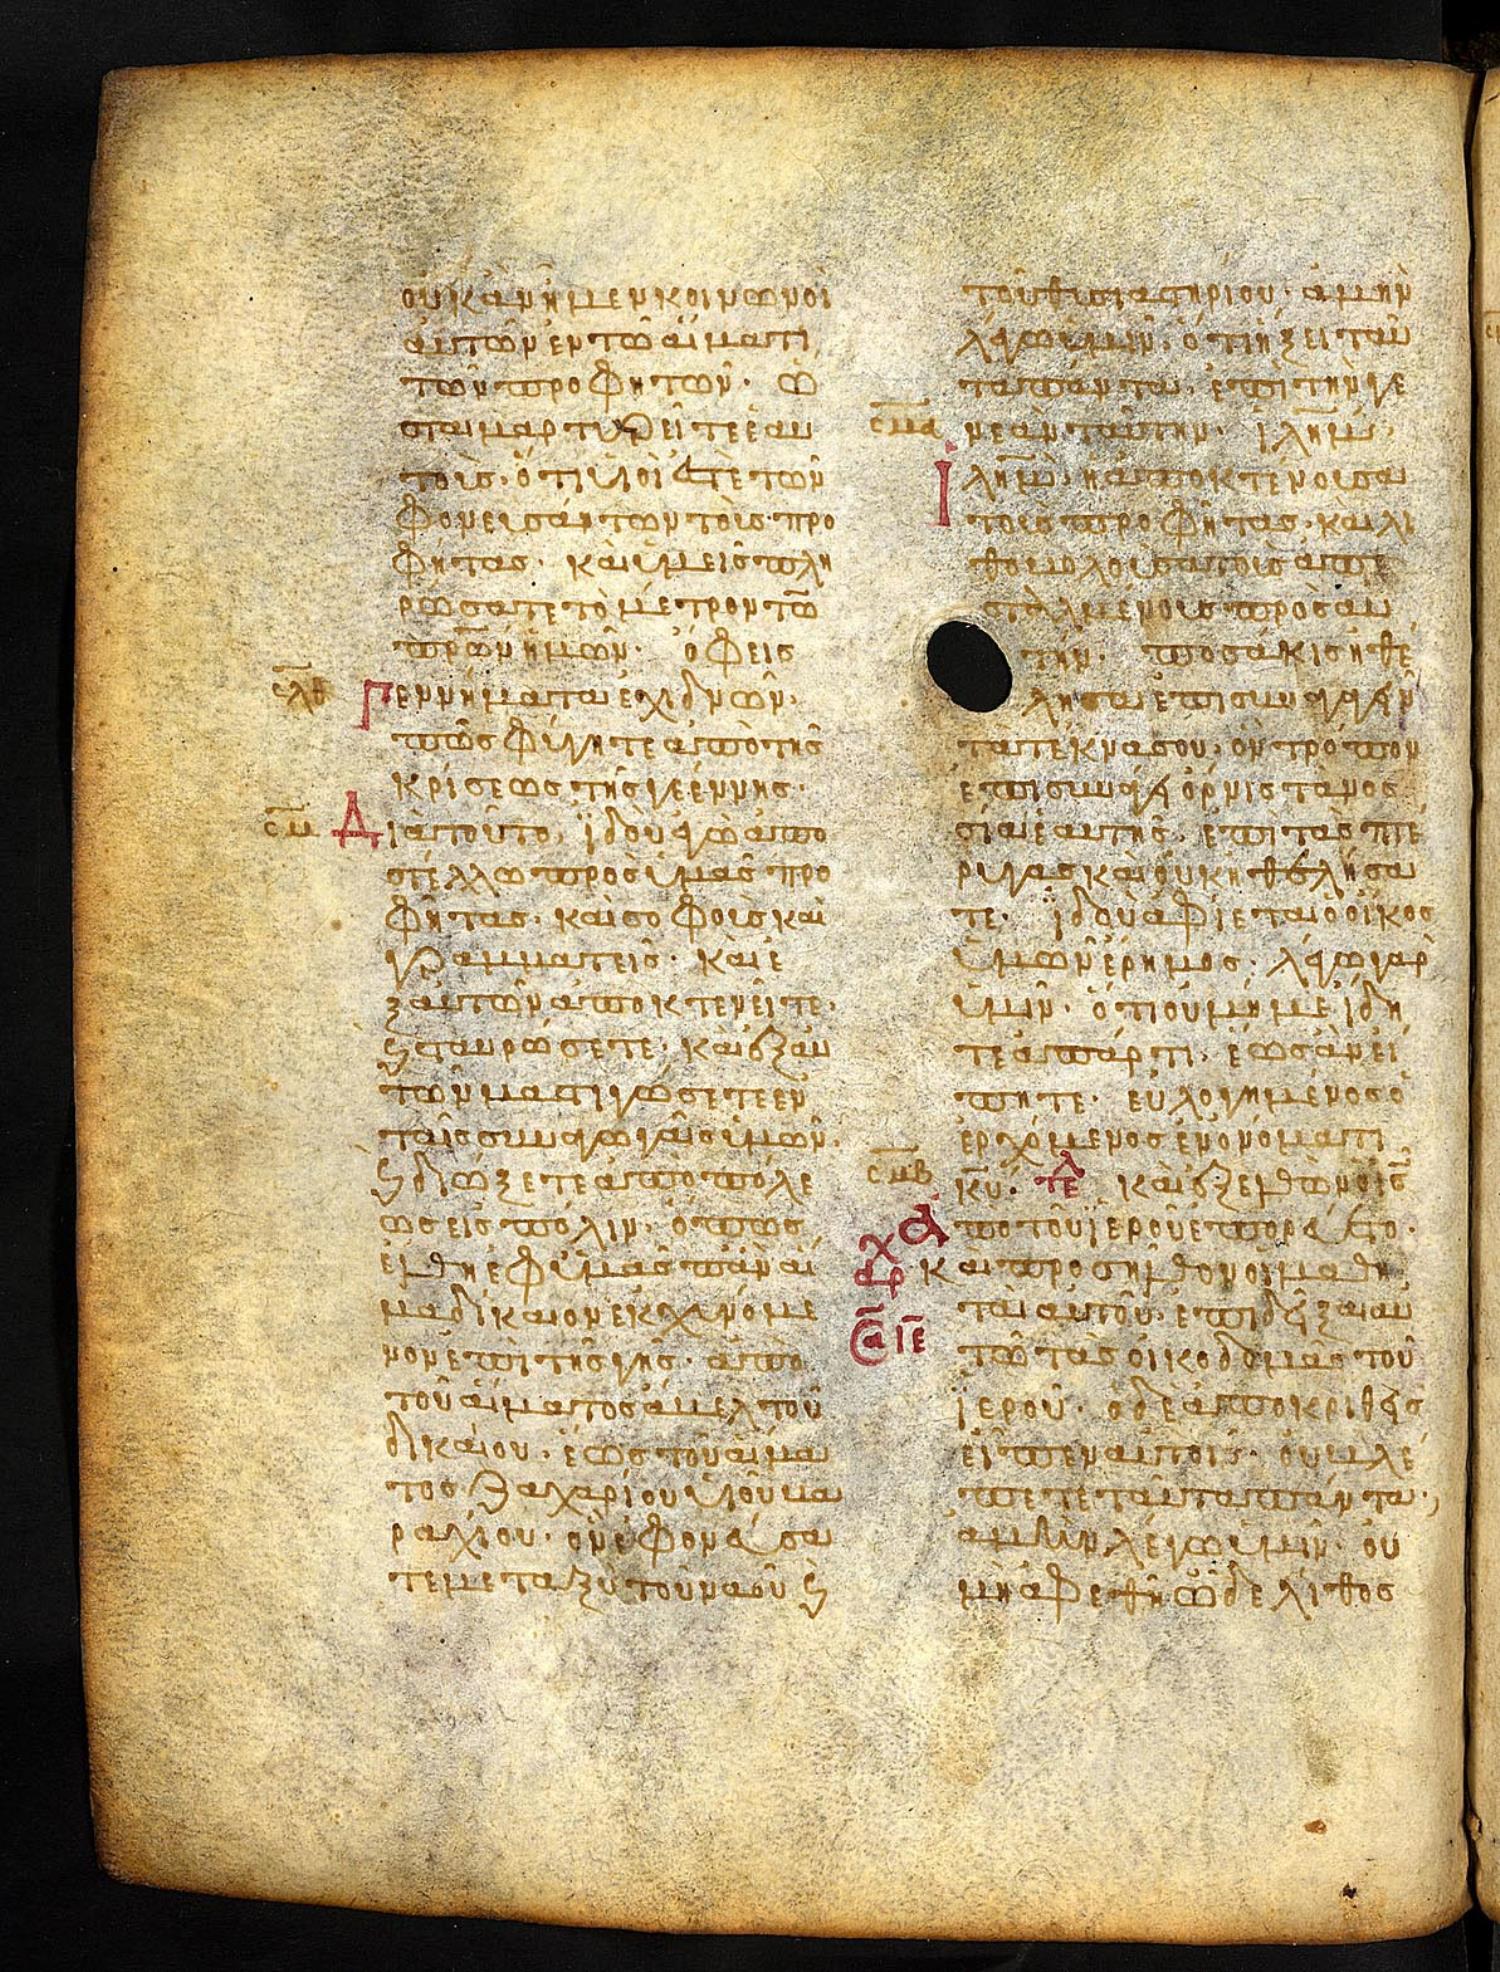 οὐκ ἂν ἦμεν κοινωνοὶ
αὐτῶν ἐν τῶ αἵματι
τῶν προφητῶν· ὥ
στε μαρτυρεῖτε ἑαυ
τοῖς· ὅτι υἱοί ἐστε τῶν
φονευσάντων τοὺς προ
φήτας· καὶ ὑμεῖς πλη
ρώσατε τὸ μέτρον τῶ
πρω̅ν ἡμῶν· ὄφεις
σλθ
Γεννήματα ἐχιδνῶν·
πῶς φύγητε ἀπὸ τῆς
κρίσεως τῆς γεέννης·
σμ
Διὰ τοῦτο, ἰδοὺ ἐγὼ ἀπο
στέλλω πρὸς ὑμᾶς προ
φήτας· καὶ σοφοὺς καὶ
γραμματεῖς· καὶ ἐ
ξ αὐτῶν ἀποκτενεῖτε·
ϛ σταυρώσετε· καὶ ἐξ αὐ
τῶν μαστιγώσετε ἐν
ταῖς συναγωγαῖς ὑμῶν·
ϛ διώξετε ἀπὸ πόλε
ως εἰς πόλιν· ὅπως
ἔλθη ἐφ ὑμᾶς πᾶν αἷ
μα δίκαιον ἐκχυνόμε
νον ἐπὶ τῆς γῆς· ἀπὸ
τοῦ αἵματος ἄμελ τοῦ
δικαίου· ἕως τοῦ αἵμα
τος ζαχαρίου υἱοῦ βα
ραχίου· ὃν ἐφονεύσα
τε μεταξὺ τοῦ ναοῦ ϛ
τοῦ θυσιαστηρίου· ἀμὴν
λέγω ὑμῖν· ὅτι ἥξει ταῦ
τα πάντα· ἐπὶ τὴν γε
σμα
νεὰν ταύτην· ἰλη̅μ·
Ἰλη̅μ· ἡ ἀποκτένουσα
τοὺς προφήτας· καὶ λι
θοβολοῦσα τοὺς ἀπε
σταλμένους πρὸς αὐ
τήν· ποσάκις ἠθέ
λησα ἐπισυναγαγεῖν
τὰ τέκνα σου· ὃν τρόπον
ἐπισυνάγει ὄρνις τὰ νοσ
σία ἑαυτῆς· ἐπὶ τὰς πτέ
ρυγας καὶ οὐκ ἠθελήσα
τε· ἰδοὺ ἀφίεται ὁ οἶκος
ὑμῶν ἔρημος· λέγω γὰρ
ὑμῖν· ὅτι οὐ μή με ἴδη
τε ἀπάρτι· ἕως ἂν εἴ
πητε· εὐλογημένος ὁ
ἐρχόμενος ἐν ὀνόματι
σμβ
κ̅υ· τε καὶ ἐξελθὼν ὁ ι̅ς
ἀπὸ τοῦ ἱεροῦ ἐπορεύετο·
καὶ προσῆλθον οἱ μαθη
ταὶ αὐτοῦ· ἐπιδεῖξαι αὐ
τῶ τὰς οἰκοδομὰς τοῦ
ἱεροῦ· ὁ δὲ ἀποκριθεὶς
εἶπεν αὐτοῖς· οὐ βλέ
πετε ταῦτα πάντα·
ἀμὴν λέγω ὑμῖν· οὐ
μὴ ἀφεθῆ ὧδε λίθος